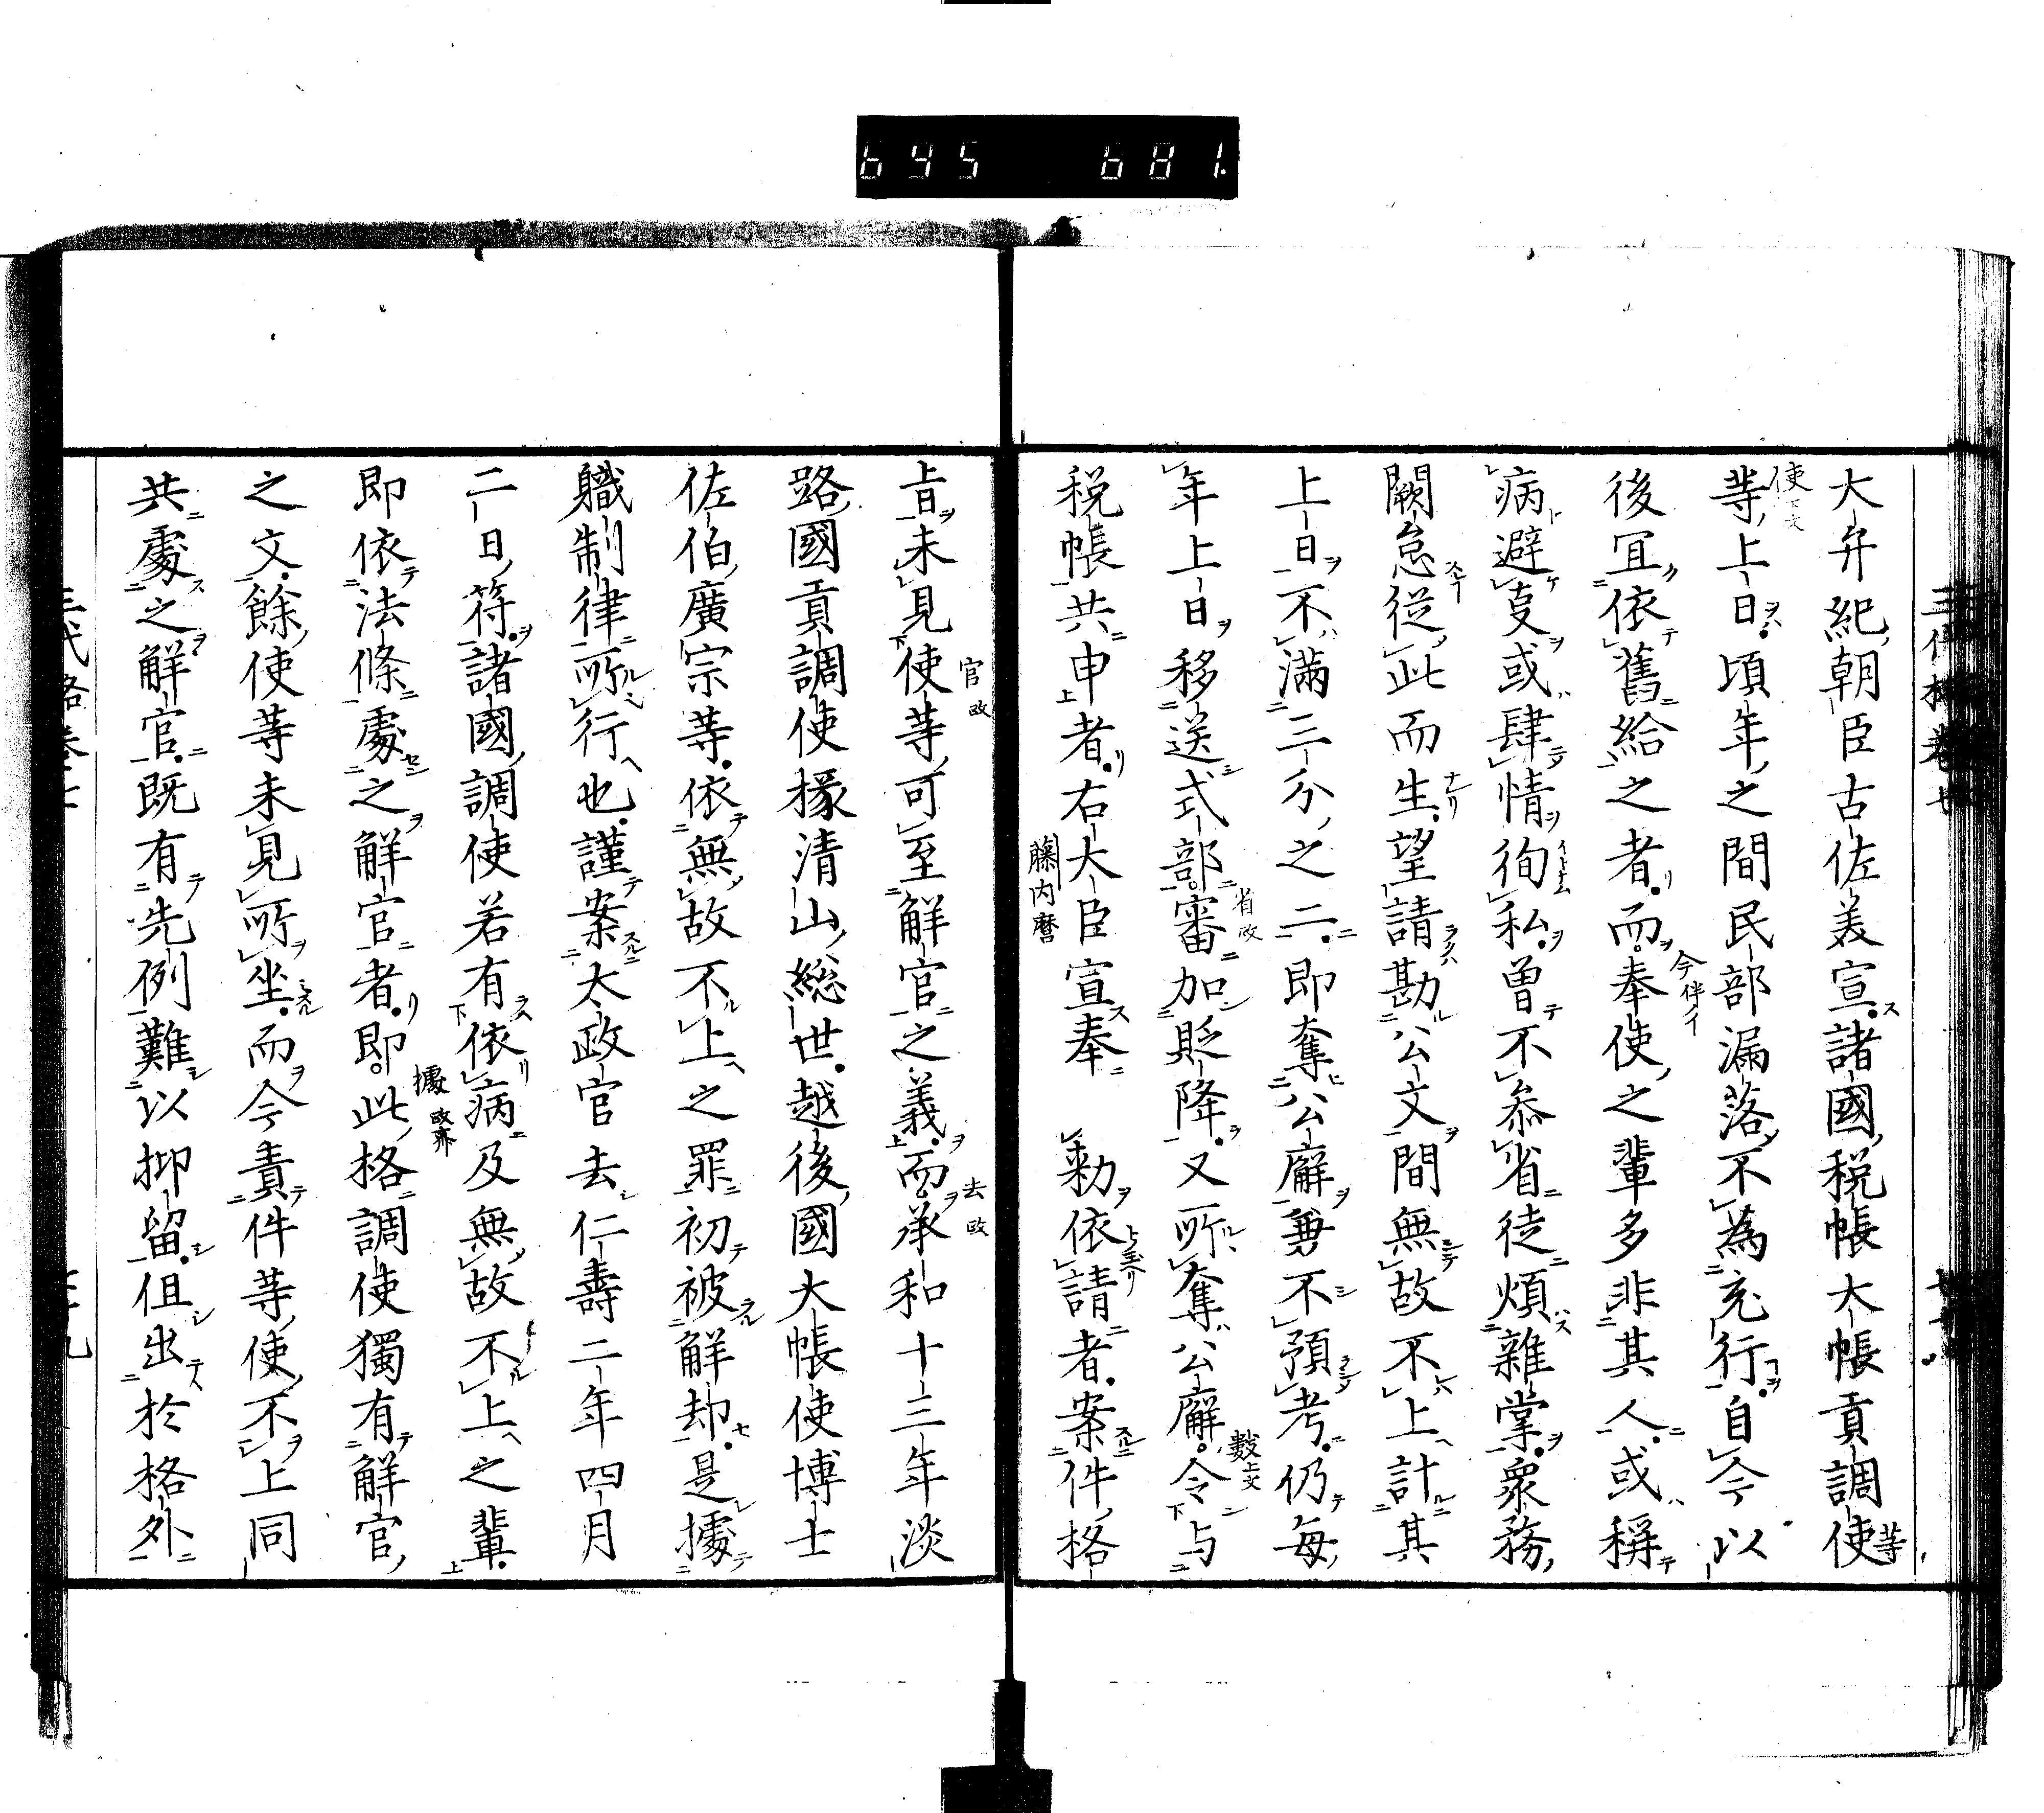 645 681.
大弁紀朝臣古佐美宣諸國税帳大帳貢調使等
䒭上日頃年之間民部漏落不為充行自今以
使下文
後冝依舊給之者而奉使之輩多非其人或稱
今伴イ
病避㕝或肆情徇私曽不叅省徒煩雜掌衆務
闕怠從此而生望請勘公文間無故不上計其
上日不滿三分之二即奪公廨兼不預考仍毎
年上日移送式部審加貶降又所奪公廨令与
省改
數上文
税帳共申者右大臣宣奉 勅依請者案件格
藤内麿
上旨未見使等可至解官之義而承和十三年淡
官改
去改
路國貢調使掾清山総世越後國大帳使博士
佐伯廣宗等依無故不上之罪初被解却是據
職制律所行也謹案太政官去仁壽二年四月
二日符諸國調使若有依病及無故不上之輩
即依法條處之解官者即此格調使獨有解官
據改亦
之文餘使等未見所坐而今責件等使不上同
共處之解官既有先例難以抑留但出於格外